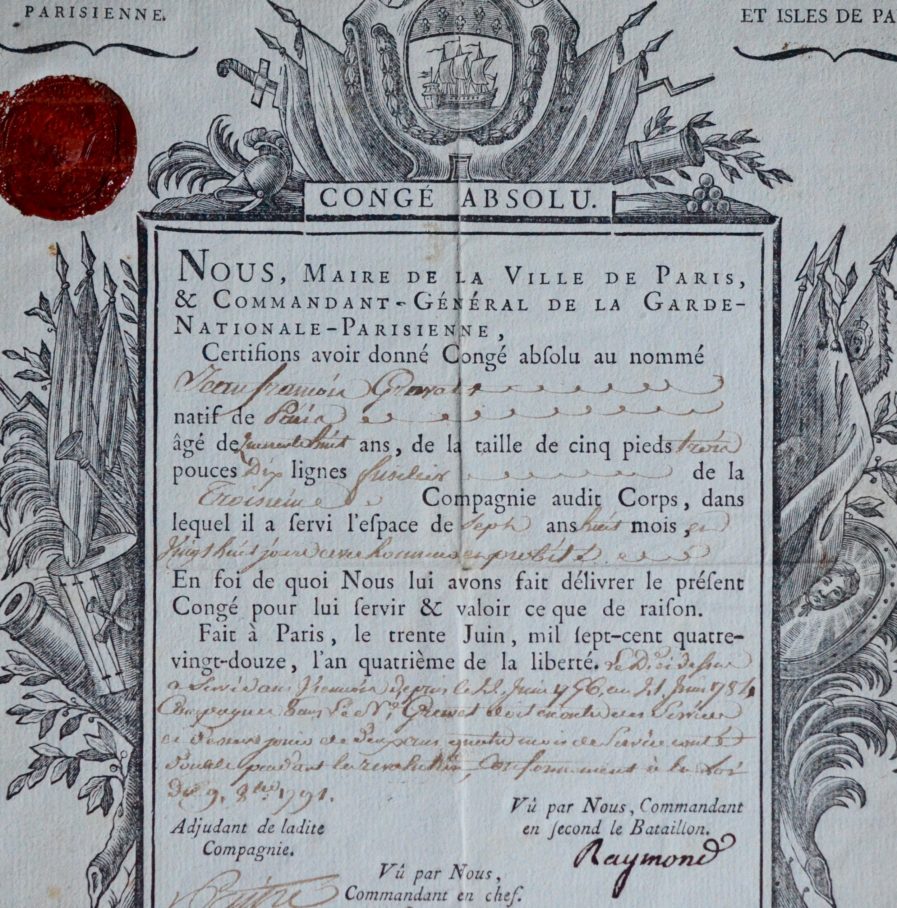 PARISIENNE.
ET ISLES DE PA
CONGÉ ABSOLU.
NOUS, MAIRE DE LA VILLE DE PARIS,
& COMMANDANT-GÉNÉRAL DE LA GARDE-
NATIONALE-PARISIENNE,
Certifions avoir donné Congé absolu au nommé
Jean françois
natif de Paris
âgé de quarante huit ans, de la taille de cinq pieds trois
pouces Dix lignes fusilier de la
Troisieme Compagnie audit Corps, dans
lequel il a ſervi l'eſpace de Sept ans huit mois, et
Vingt huit jours avec honneur et probité
En foi de quoi Nous lui avons fait délivrer le préſent
Congé pour lui ſervir & valoir ce que de raiſon.
Fait à Paris, le trente Juin, mil ſept-cent quatre-
vingt-douze, l'an quatrième de la liberté. Le
a Servi dans depuis le 22 Juin 1756 au 21 Juin 1784
Compagnie Sans
de quatre mois de Service
Double pendant la revolution, Conformement à la Loi
Du 1791.
Vû par Nous, Commandant
en ſecond le Bataillon.
Raymond
Adjudant de ladite
Compagnie.
Vû par Nous,
Commandant en chef.